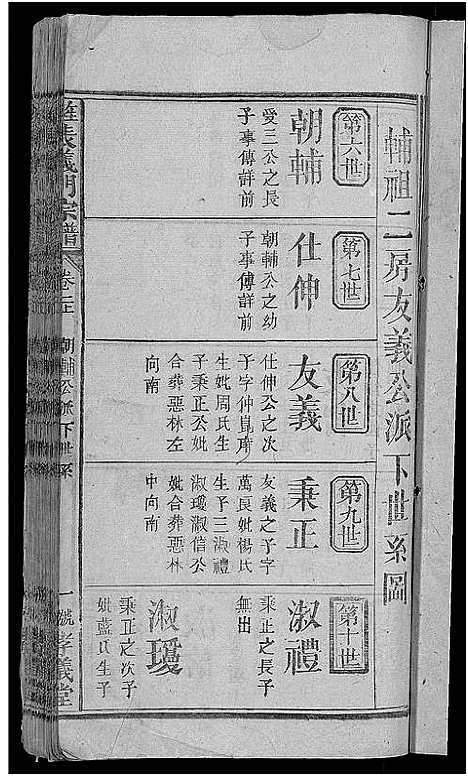 輔祖二房友義公派下世系圖
第六世
朝輔
愛三公之長
子事傳詳前
第七世
仕伸
朝輔公之幼
子事傳詳前
第八世
友義
仕伸公之次
子字仲崑庠
生妣周氏生
子秉正公妣
合葬惡林左
向南
第九世
秉正
友義之子字
萬良妣楊氏
生子三淑禮
淑瓊淑信公
妣合葬惡林
中向南
第十世
淑禮
秉正之長子
無出
淑瓊
秉正之次子
妣藍氏生子
張氏義門宗譜
朝輔公派下世系
一號孝義堂